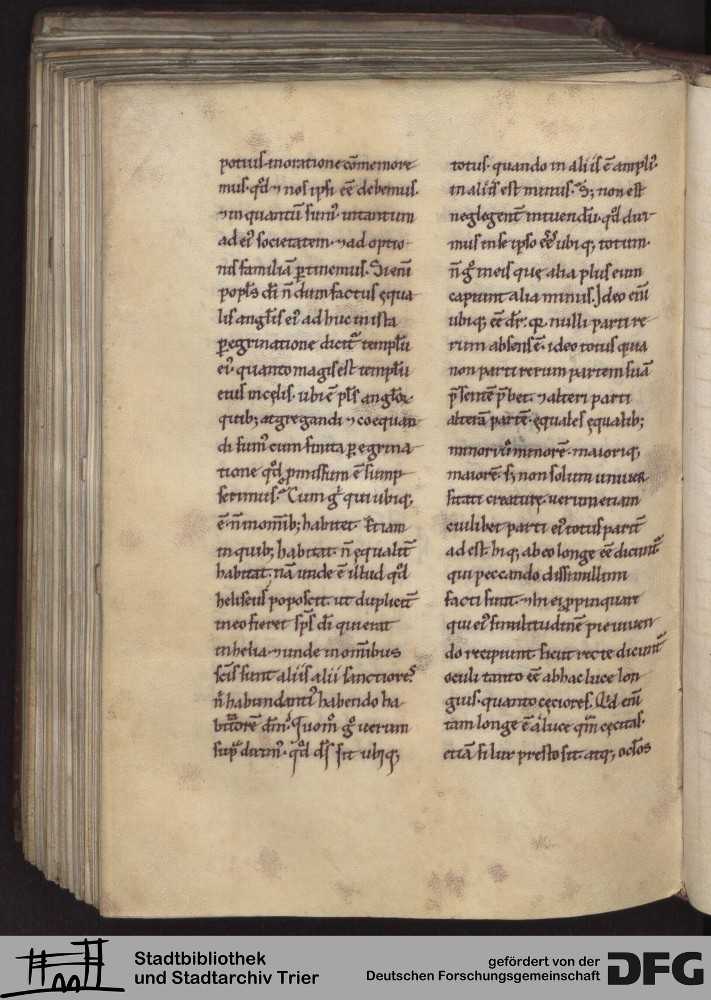 potius inoratione cōmemore
mus· qđ ⁊ nos ipsi eē debemus·
⁊ in quantū sumꝰ· intantum
ad eiꝰ societatem· ⁊ ad optio
nis familiā ꝑtinemus· Si eni
popl̄s dī n̄ dum factus ęqua
lis angl̄is eiꝰ adhuc in ista
ꝑegrinatione dicit̄ templū
eiꝰ· quanto magis est templū
eius incęlis· ubi ē pl̄s angl̄oꝝ
quib; atgregandi ⁊ coequan
di sumꝰ cum finita ꝑegrina
tione qđ ꝓmissum ē sump
serimus· Cum gͦ qui ubiq;
ē· n̄ in om̄ib; habitet· Etiam
in quib; habitat· n̄ ęqualit̄
habitat· nā unde ē illud qđ
heliseus poposcit· ut duplicit̄
in eo fieret sp̄s dī qui erat
in helia· ⁊ unde in om̄ibus
sc̄is sunt aliis alii sanctiores·
n̄ habundantiꝰ habendo ha
bitatorē dm̄· Quom̄ gͦ uerum
supͣ diximꝰ· qđ ds̄ sit ubiq;
totus· quando in aliis ē ampliꝰ
in aliis est minus· S; non est
neglegent̄ intuendū· qđ dixi
mus in se ipso eē ubiq; totum·
n̄ gͦ in eis quę alia plus eum
capiunt alia minus· Ideo eni
ubiq; eē dr̄· qꝛ nulli parti re
rum absens ē· ideo totus quia
non parti rerum partem suā
p̄sentē p̄bet· ⁊ alteri parti
alterā partē· ęquales ęqualib;
minori ū minorē· maioriq;
maiorē· s; non solum uniuer
sitati creaturę· uerum etiam
cuilibet parti eiꝰ totus parit̄
adest· hiq; ab eo longe eē dicunt̄
qui peccando dissimillimi
facti sunt· ⁊ hi ei ꝓpinquare
qui eiꝰ similitudinē pie uiuen
do recipiunt· sicut recte dicunt̄
oculi tanto eē ab hac luce lon
gius· quanto cęciores· Qd eni
tam longe ē a luce qm̄ cęcitas·
etiā si lux presto sit· atq; oclos
Stadtbibliothek
und Stadtarchiv Trier
gefördert von der
Deutschen Forschungsgemeinschaft
DFG